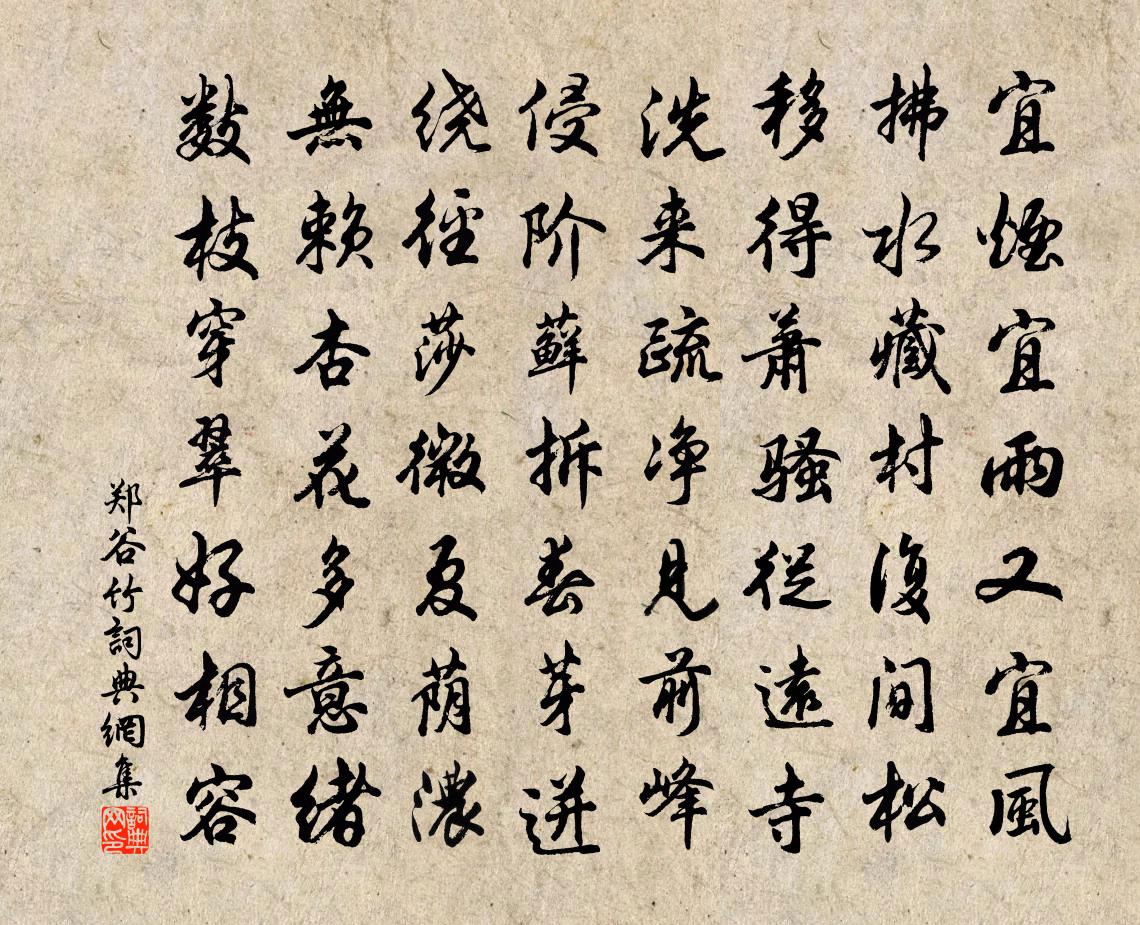 宜煙宜雨又宜風
拂水藏村復间松
移得萧骚從遠寺
洗来疏净見前峰
侵阶蘚拆春芽迸
绕徑莎微夏荫濃
無赖杏花多意绪
数枝穿翠好相容
郑谷竹詞典網集
詞典网印